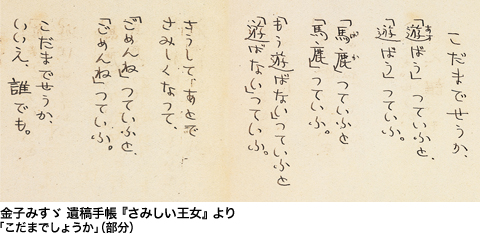 こだまでせうか、
「遊ばう」つていふと、
「遊ばう」つていふ。
「馬鹿」つていふと
「馬鹿」つていふ。
「もう遊ばない」つていふと
「遊ばない」つていふ。
さうして、あとで
さみしくなつて、
「ごめんね」つていふと、
「ごめんね」つていふ。
こだまでせうか、
いいえ、誰でも。
金子みすゞ 遺稿手帳『さみしい王女』より
「こだまでしょうか」（部分）